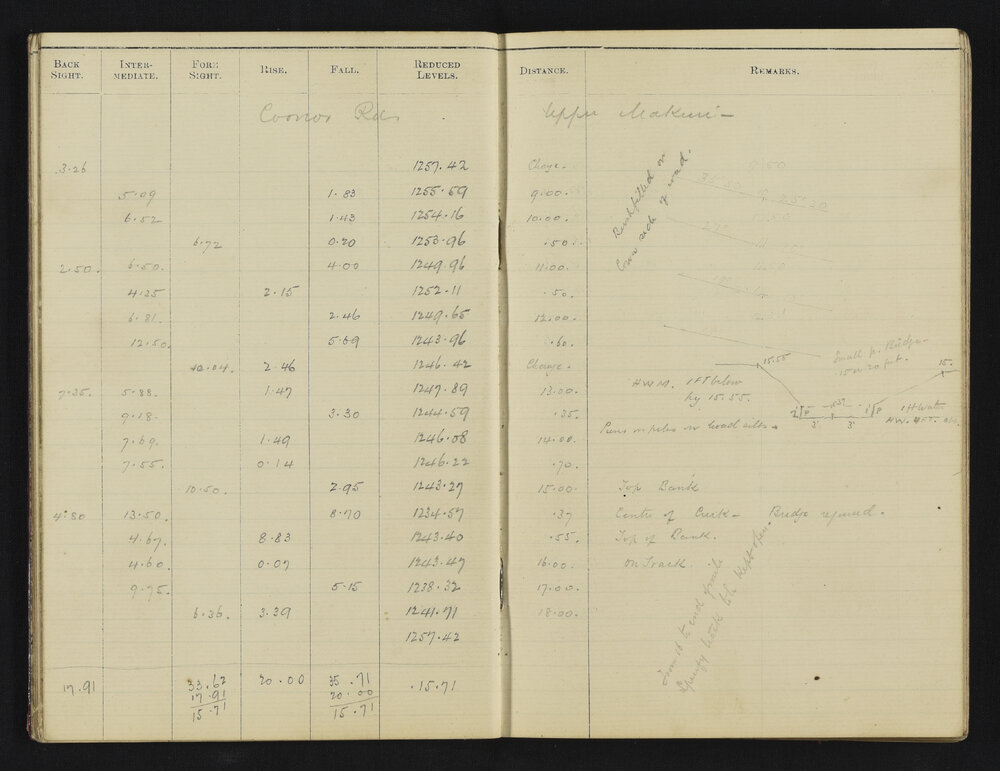 BACK SIGHT. INTER-MEDIATE. FORE SIGHT. RISE. FALL. REDUCED LEVELS. DISTANCE. REMARKS.
Coonoor Rds Upper Makuri —
3.26 1257.42 Change.
5.09 1.83 1255.59 9.00.
6.52 1.43 1254.16 10.00.
6.72 0.20 1253.96 .50.
2.50. 6.50. 4.00 1249.96 11.00.
4.35 2.15 1252.11 .50.
6.81. 2.46 1249.65 12.00.
12.50. 5.69 1243.96 .60.
10.04. 2.46 1246.42 Change.
7.35. 5.88. 1.47 1247.89 13.00.
9.18. 3.30 1244.59 .35.
7.69. 1.49 1246.08 14.00.
7.55. 0.14 1246.22 .70.
10.50. 2.95 1243.27 15.00. Top Bank
4.80 13.50. 8.70 1234.57 .37 Centre of Creek — Bridge required.
4.67. 8.83 1243.40 .55. Top of Bank.
4.60. 0.07 1243.47 16.00. on Track.
9.75. 5.15 1238.32 17.00.
6.36. 3.39 1241.71 18.00.
1257.42
17.91 33.62 20.00 35.71 .15.71
17.91 20.00
15.71 15.71
Bush felled on
side of road.
15.55
Small p. Bridge
15 W 20 ft.
15.
H.W.M. 1 FT below
peg 15.55.
1 ft water
HW. 4FT.
3' 3'
From 16 to end